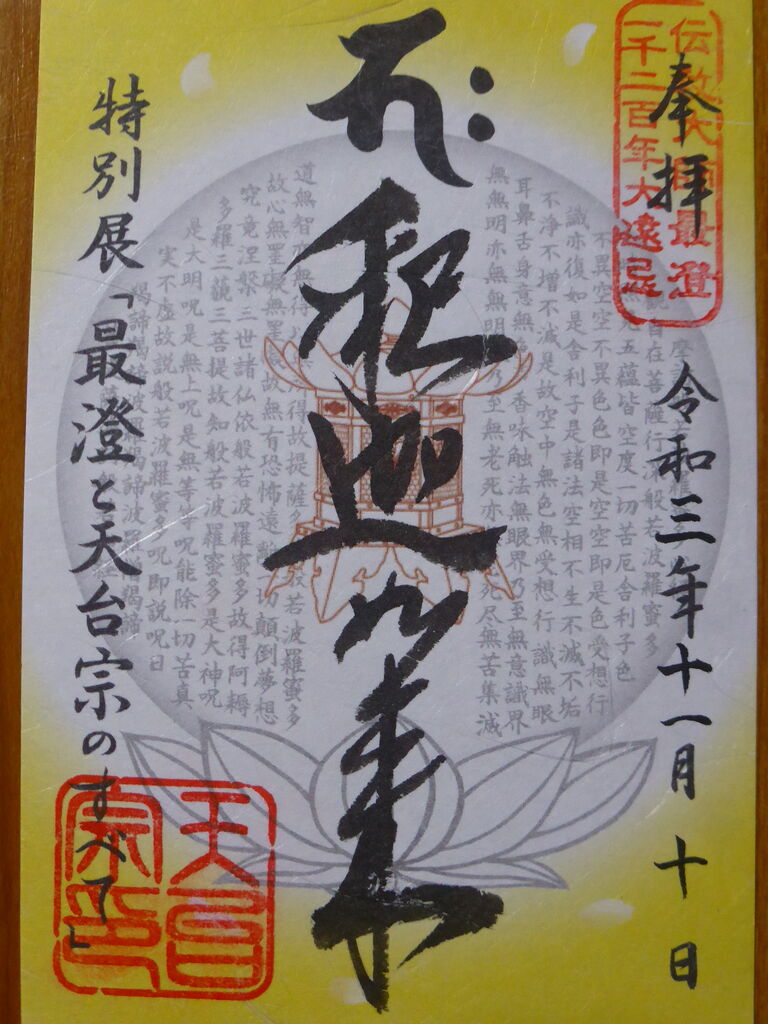 伝教大師最澄
一千二百年大遠忌
奉拝
令和三年十一月十日
釈迦如来
特別展「最澄と天台宗のすべて」
天台
宗印
自在菩薩行深般若波羅蜜多
五蘊皆空度一切苦厄舎利子色
不異空空不異色色即是空空即是色受想行
識亦復如是舎利子是諸法空相不生不滅不垢
不浄不増不減是故空中無色無受想行識無眼
耳鼻舌身意無色香味触法無眼界乃至無意識界
無無明亦無無明乃至無老死亦死尽無苦集滅
道無智亦無得得故提薩般若波羅蜜多
故心無罣礙無罣故無有恐怖遠一切顛倒夢想
究竟涅槃三世諸仏依般若波羅蜜多故得阿耨
多羅三藐三菩提故知般若波羅蜜多是大神呪
是大明呪是無上呪是無等等呪能除一切苦真
実不虚故説般若波羅蜜多呪即説呪曰
羯諦羯諦波羅羯諦波羅僧羯諦